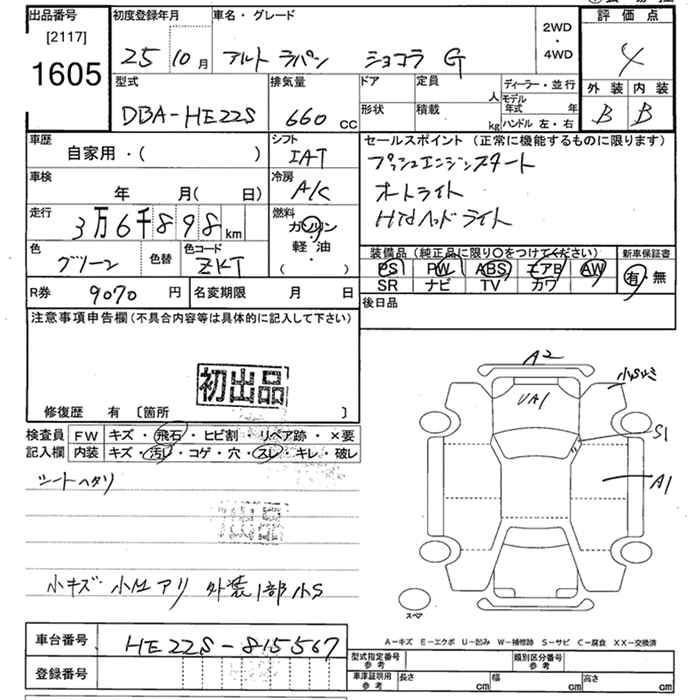 出品番号 初度登録年月 車名・グレード 評価点
[2117] 2WD・4WD
1605 25 10月 アルト ラパン ショコラ G 4
型式 排気量 ドア 定員 人 ディーラー・並行 外装 内装
DBA-HE22S 660 CC 形状 積載 kg モデル年式 年 ハンドル 左・右 B B
車歴 シフト セールスポイント (正常に機能するものに限ります)
自家用・( ) IAT プッシュエンジンスタート
車検 冷房 オートライト
年 月( 日) A/C HIDヘッドライト
走行 燃料
3万6千898km ガソリン
色 色替 色コード 軽油 装備品 (純正品に限り〇をつけてください) 新車保証書
グリーン ZKT ・( ) PS PW ABS エアB AW 有・無
SR ナビ TV カワ
R券 9070円 名変期限 月 日 後日品
注意事項申告欄(不具合内容等は具体的に記入して下さい)
初出品
修復歴 有 〔箇所 〕
検査員 FW キズ・飛石・ヒビ割・リペア跡・×要
記入欄 内装 キズ・汚れ・コゲ・穴・スレ・キレ・破レ
シートヘタリ
小キズ 小凹 アリ 外装1部小S
A2
UA1
S1
A1
スペア
車台番号 HE22S-815567
登録番号
A-キズ E-エクボ U-凹み W-補修跡 S-サビ C-腐食 XX-交換済
型式指定番号 参考 類別区分番号 参考
車庫証明用 参考 長さ cm 幅 cm 高さ cm